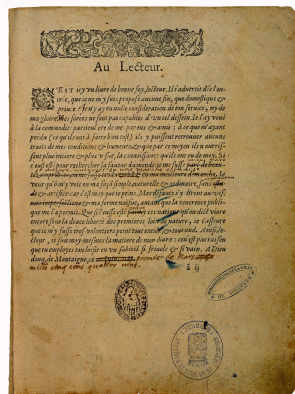 Au Lecteur.
C'EST icy vn liure de bonne foy, lecteur. Il t'aduertit dés l'en-
trée, que ie ne m'y suis proposé aucune fin, que domestique &
priuée: ie n'y ay eu nulle consideration de ton seruice, ny de
ma gloire: Mes forces ne sont pas capables d'vn tel dessein. Ie l'ay voué
à la commodité particuliere de mes parens & amis: à ce que m'ayant
perdu (ce qu'ils ont à faire bien tost) ils y puissent retrouuer aucuns
traits de mes conditions & humeurs, & que par ce moyen ils nour-
rissent plus entiere & plus vifue, la connoissance qu'ils ont eu de moy. Si
c'eust esté pour rechercher la faueur du monde, ie me fusse
veux qu'on m'y voie en ma façon simple, naturelle & ordinaire, sans
& artifice: car c'est moy que ie peins. Mes defauts s'y liront au vif,
& ma forme naïfue, autant que la reuerence publi-
que me l'a permis. Que si i'eusse esté
encore sous la douce liberté des premieres loix de nature, ie t'asseure
que ie m'y fusse tres-volontiers peint tout entier, & tout nud. Ainsi, le-
cteur, ie suis moy-mesmes la matiere de mon liure: ce n'est pas raison
que tu employes ton loisir en vn subiect si friuole & si vain. A Dieu
donq, de Montaigne, ce premier de Mars
mille cinq cens quatre vins.
ã ij